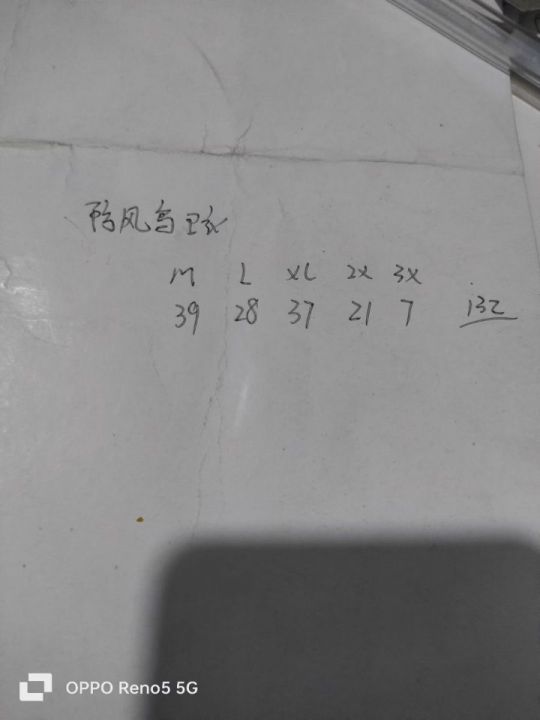 防风鸟 黑灰
M L XL 2X 3X
39 28 37 21 7 132
OPPO Reno5 5G